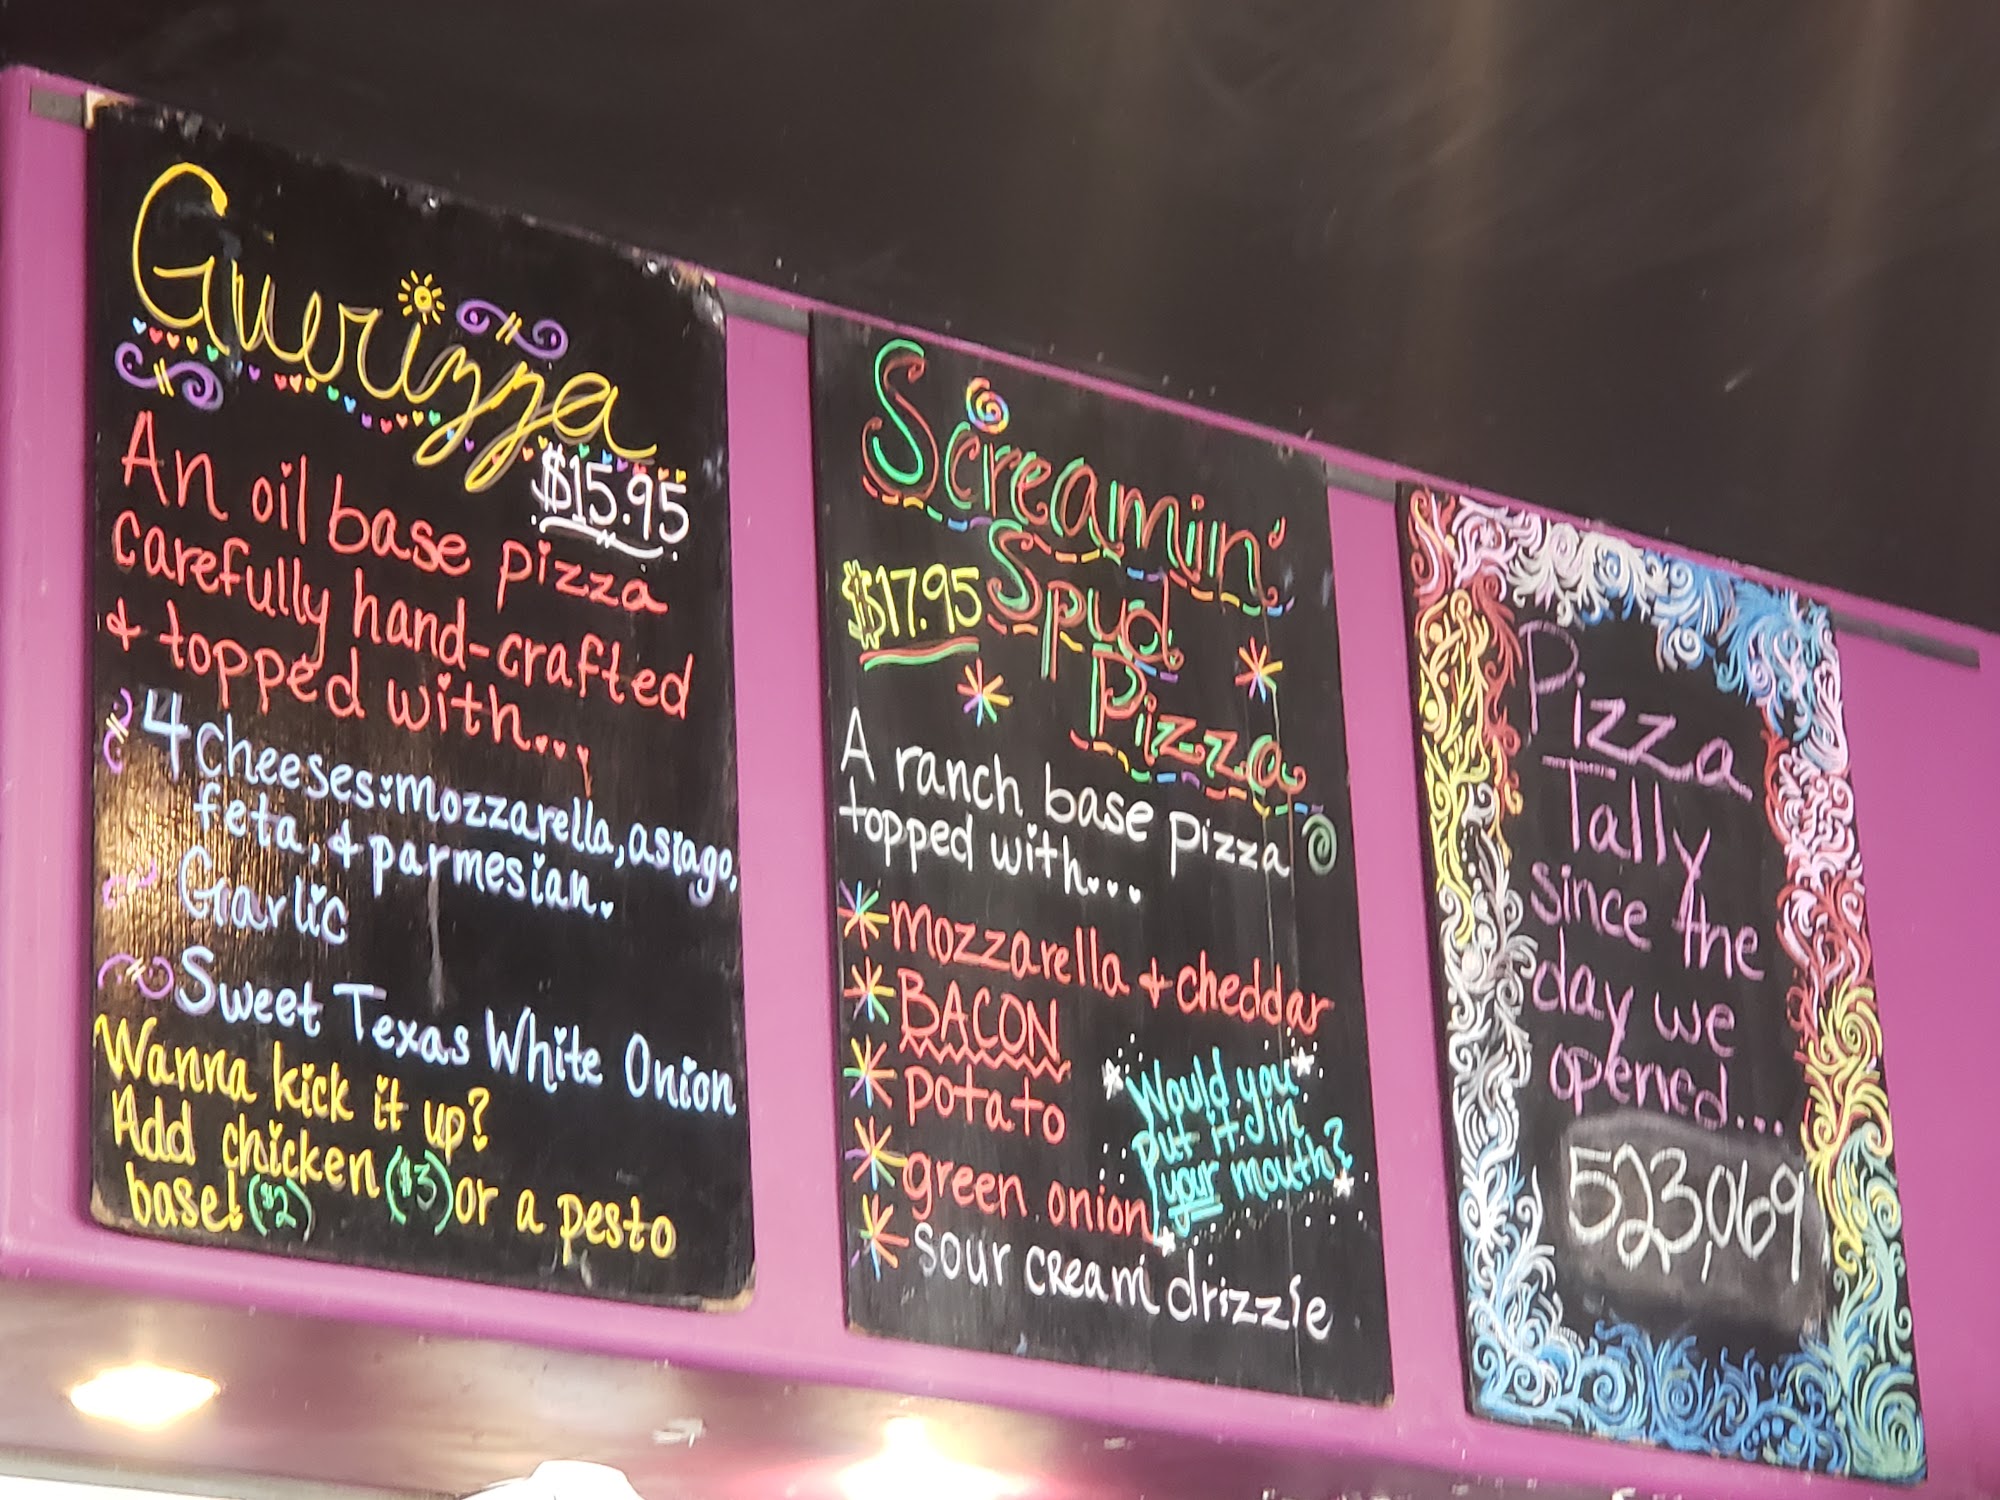 Guerizza
$15.95
An oil base pizza
carefully hand-crafted
& topped with...
4 cheeses: mozzarella, asiago,
feta, & parmesian.
Garlic
Sweet Texas White Onion
Wanna kick it up?
Add chicken ($3) or a pesto
base! ($2)
Screamin'
Spud
$17.95
Pizza
A ranch base pizza
topped with...
mozzarella & cheddar
BACON
potato
green onion
sour cream drizzle
Would you
put it in
your mouth?
Pizza
Tally
since the
day we
opened...
523,069